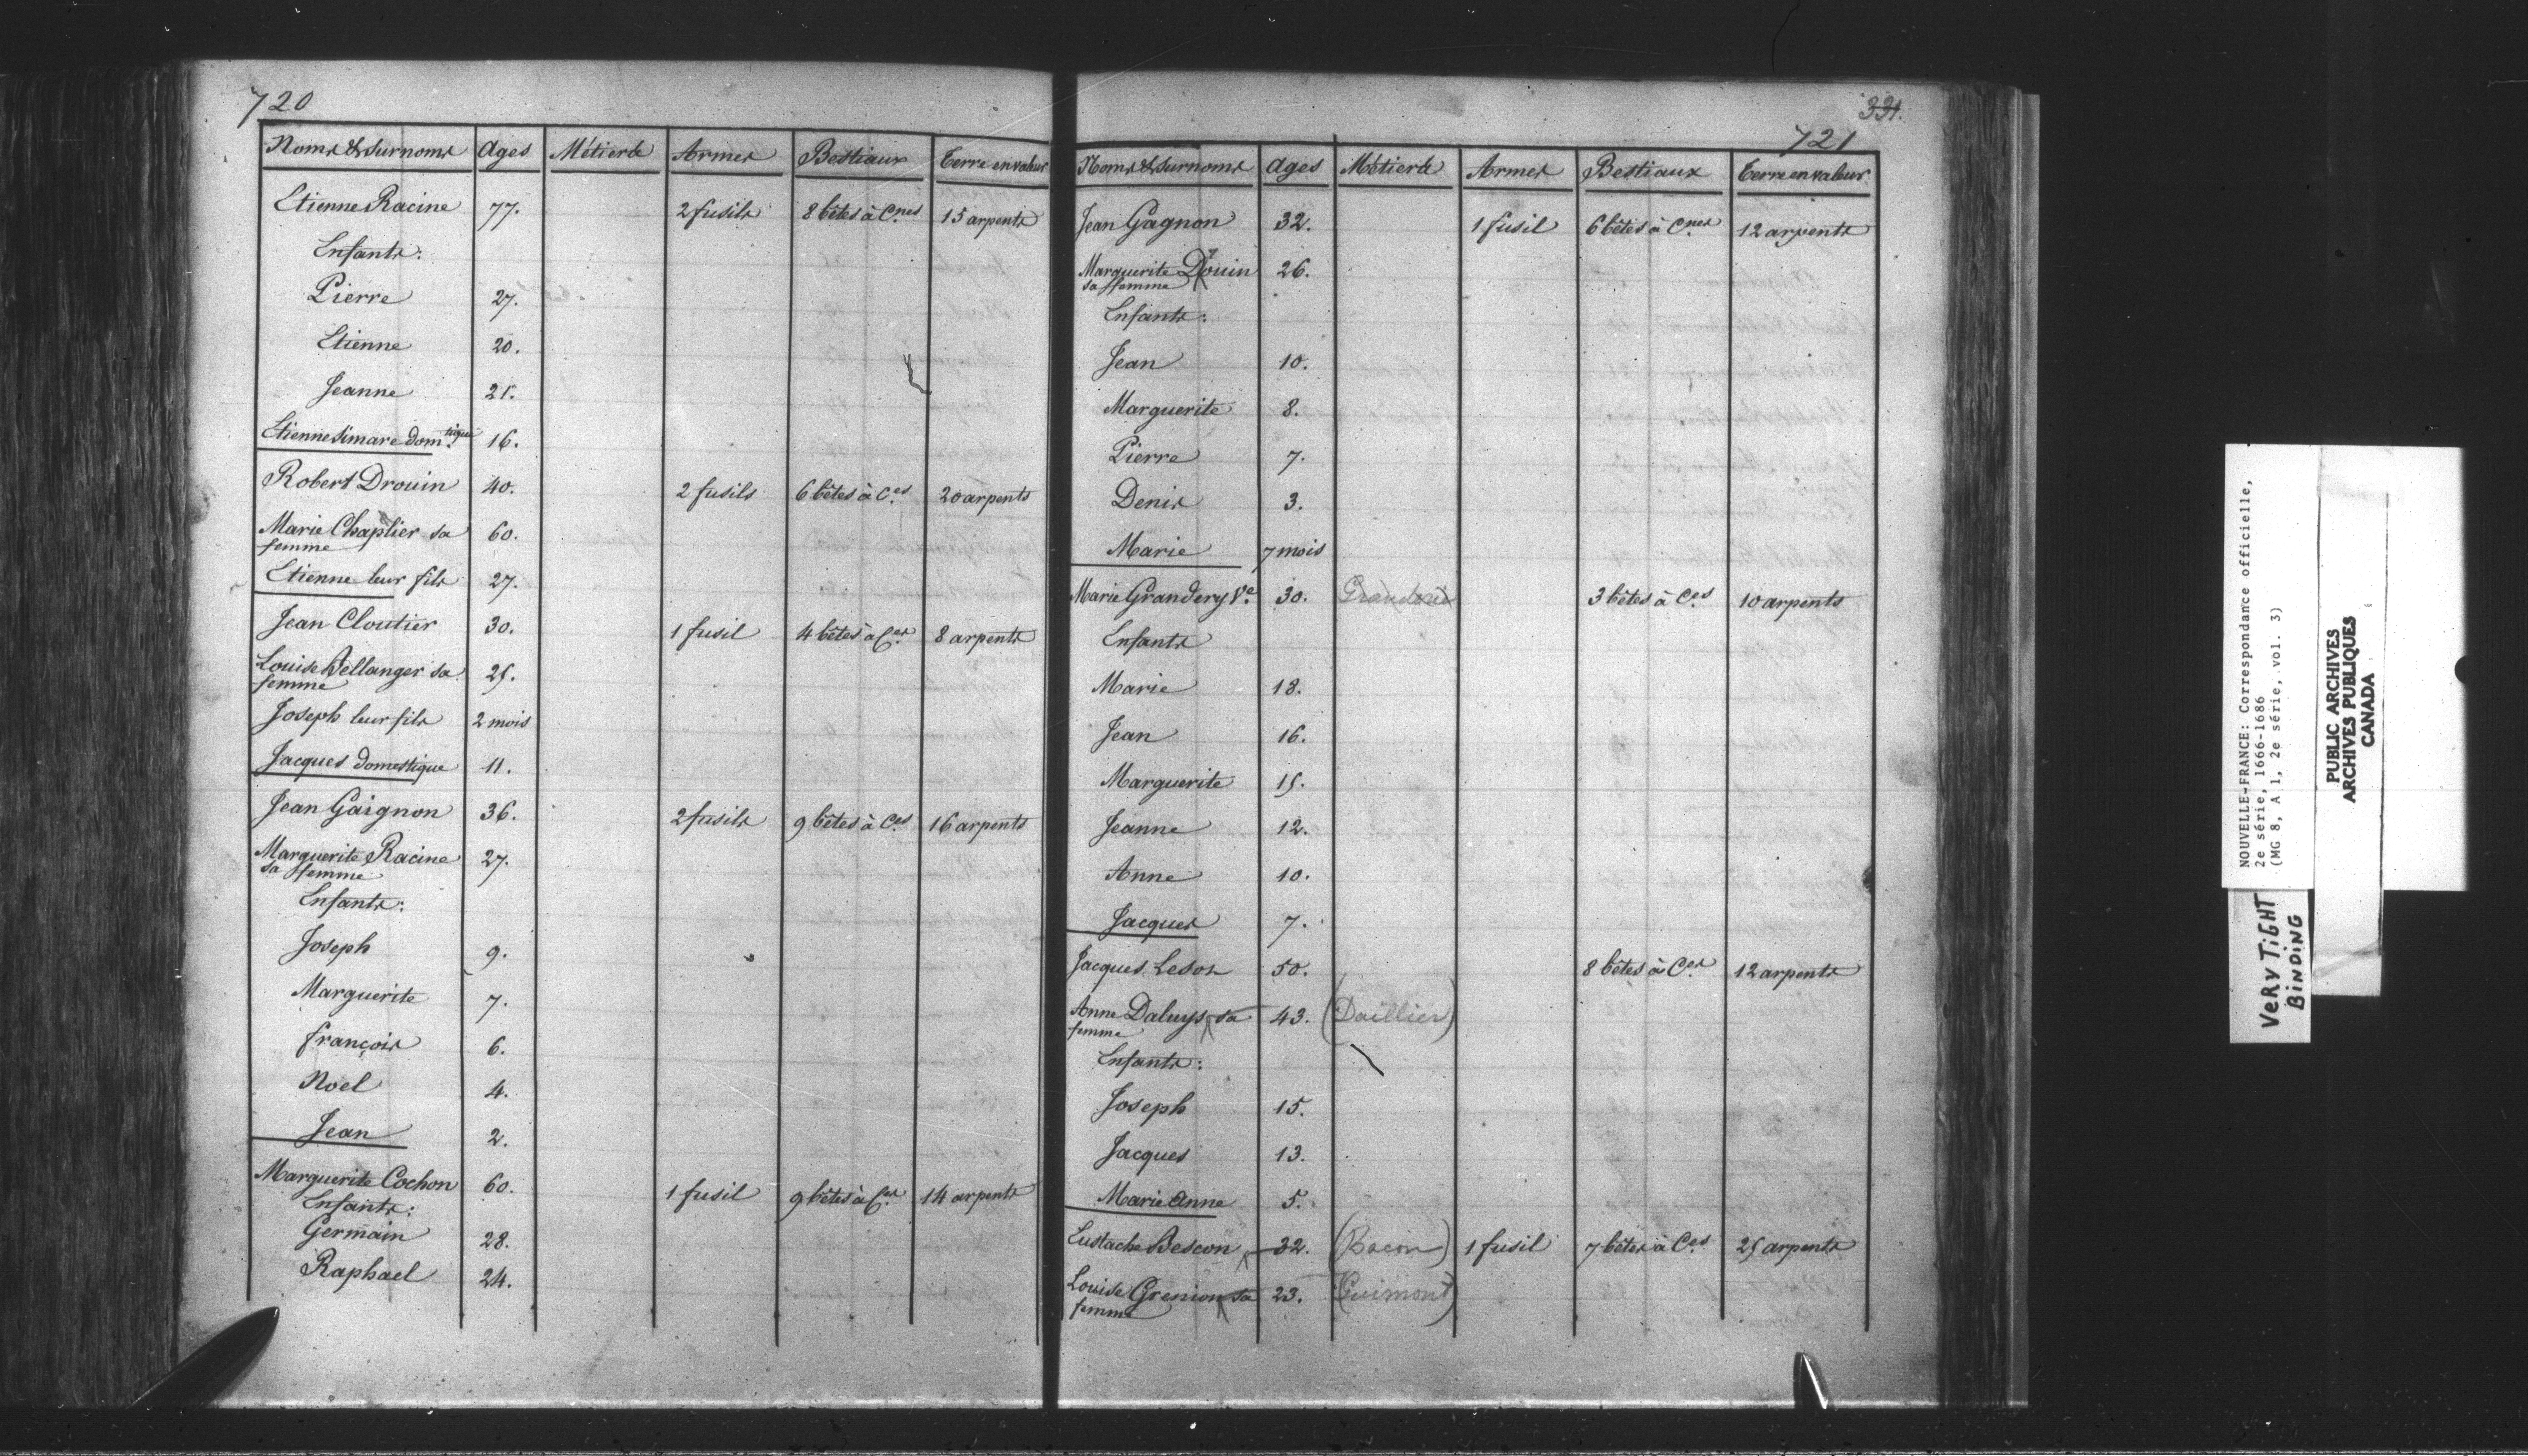 720
Noms & Surnoms Ages Métiers Armes Bestiaux Terre en valeur
Etienne Racine 77. 2 fusils 8 bêtes à C.nes 15 arpents
Enfants:
Pierre 27.
Etienne 20.
Jeanne 21.
Etienne Simare dom.tique 16.
Robert Drouin 40. 2 fusils 6 bêtes à C.es 20 arpents
Marie Chaplier sa 60.
femme
Etienne leur fils 27.
Jean Cloutier 30. 1 fusil 4 bêtes à C.es 8 arpents
Louise Bellanger sa 25.
femme
Joseph leur fils 2 mois
Jacques domestique 11.
Jean Gaignon 36. 2 fusils 9 bêtes à C.es 16 arpents
Marguerite Racine 27.
sa femme
Enfants:
Joseph 9.
Marguerite 7.
françois 6.
Noel 4.
Jean 2.
Marguerite Cochon 60. 1 fusil 9 bêtes à C.es 14 arpents
Enfants:
Germain 28.
Raphael 24.
331.
721
Noms & Surnoms Ages Métiers Armes Bestiaux Terre en valeur
Jean Gagnon 32. 1 fusil 6 bêtes à C.nes 12 arpents
Marguerite Drouin 26.
sa femme
Enfants:
Jean 10.
Marguerite 8.
Pierre 7.
Denis 3.
Marie 7 mois
Marie Grandery V.e 30. 3 bêtes à C.es 10 arpents
Enfants
Marie 18.
Jean 16.
Marguerite 15.
Jeanne 12.
Anne 10.
Jacques 7.
Jacques Lesot 50. 8 bêtes à C.es 12 arpents
Anne Daluys sa 43. (Daillier)
femme
Enfants:
Joseph 15.
Jacques 13.
Marie Anne 5.
Eustache Bescon 32. (Bacon) 1 fusil 7 bêtes à C.es 25 arpents
Louise Grenion sa 23. (Guimont)
femme
NOUVELLE-FRANCE: Correspondance officielle,
2e série, 1666-1686
(MG 8, A 1, 2e série, vol. 3)
PUBLIC ARCHIVES
ARCHIVES PUBLIQUES
CANADA
VERY TIGHT
BINDING